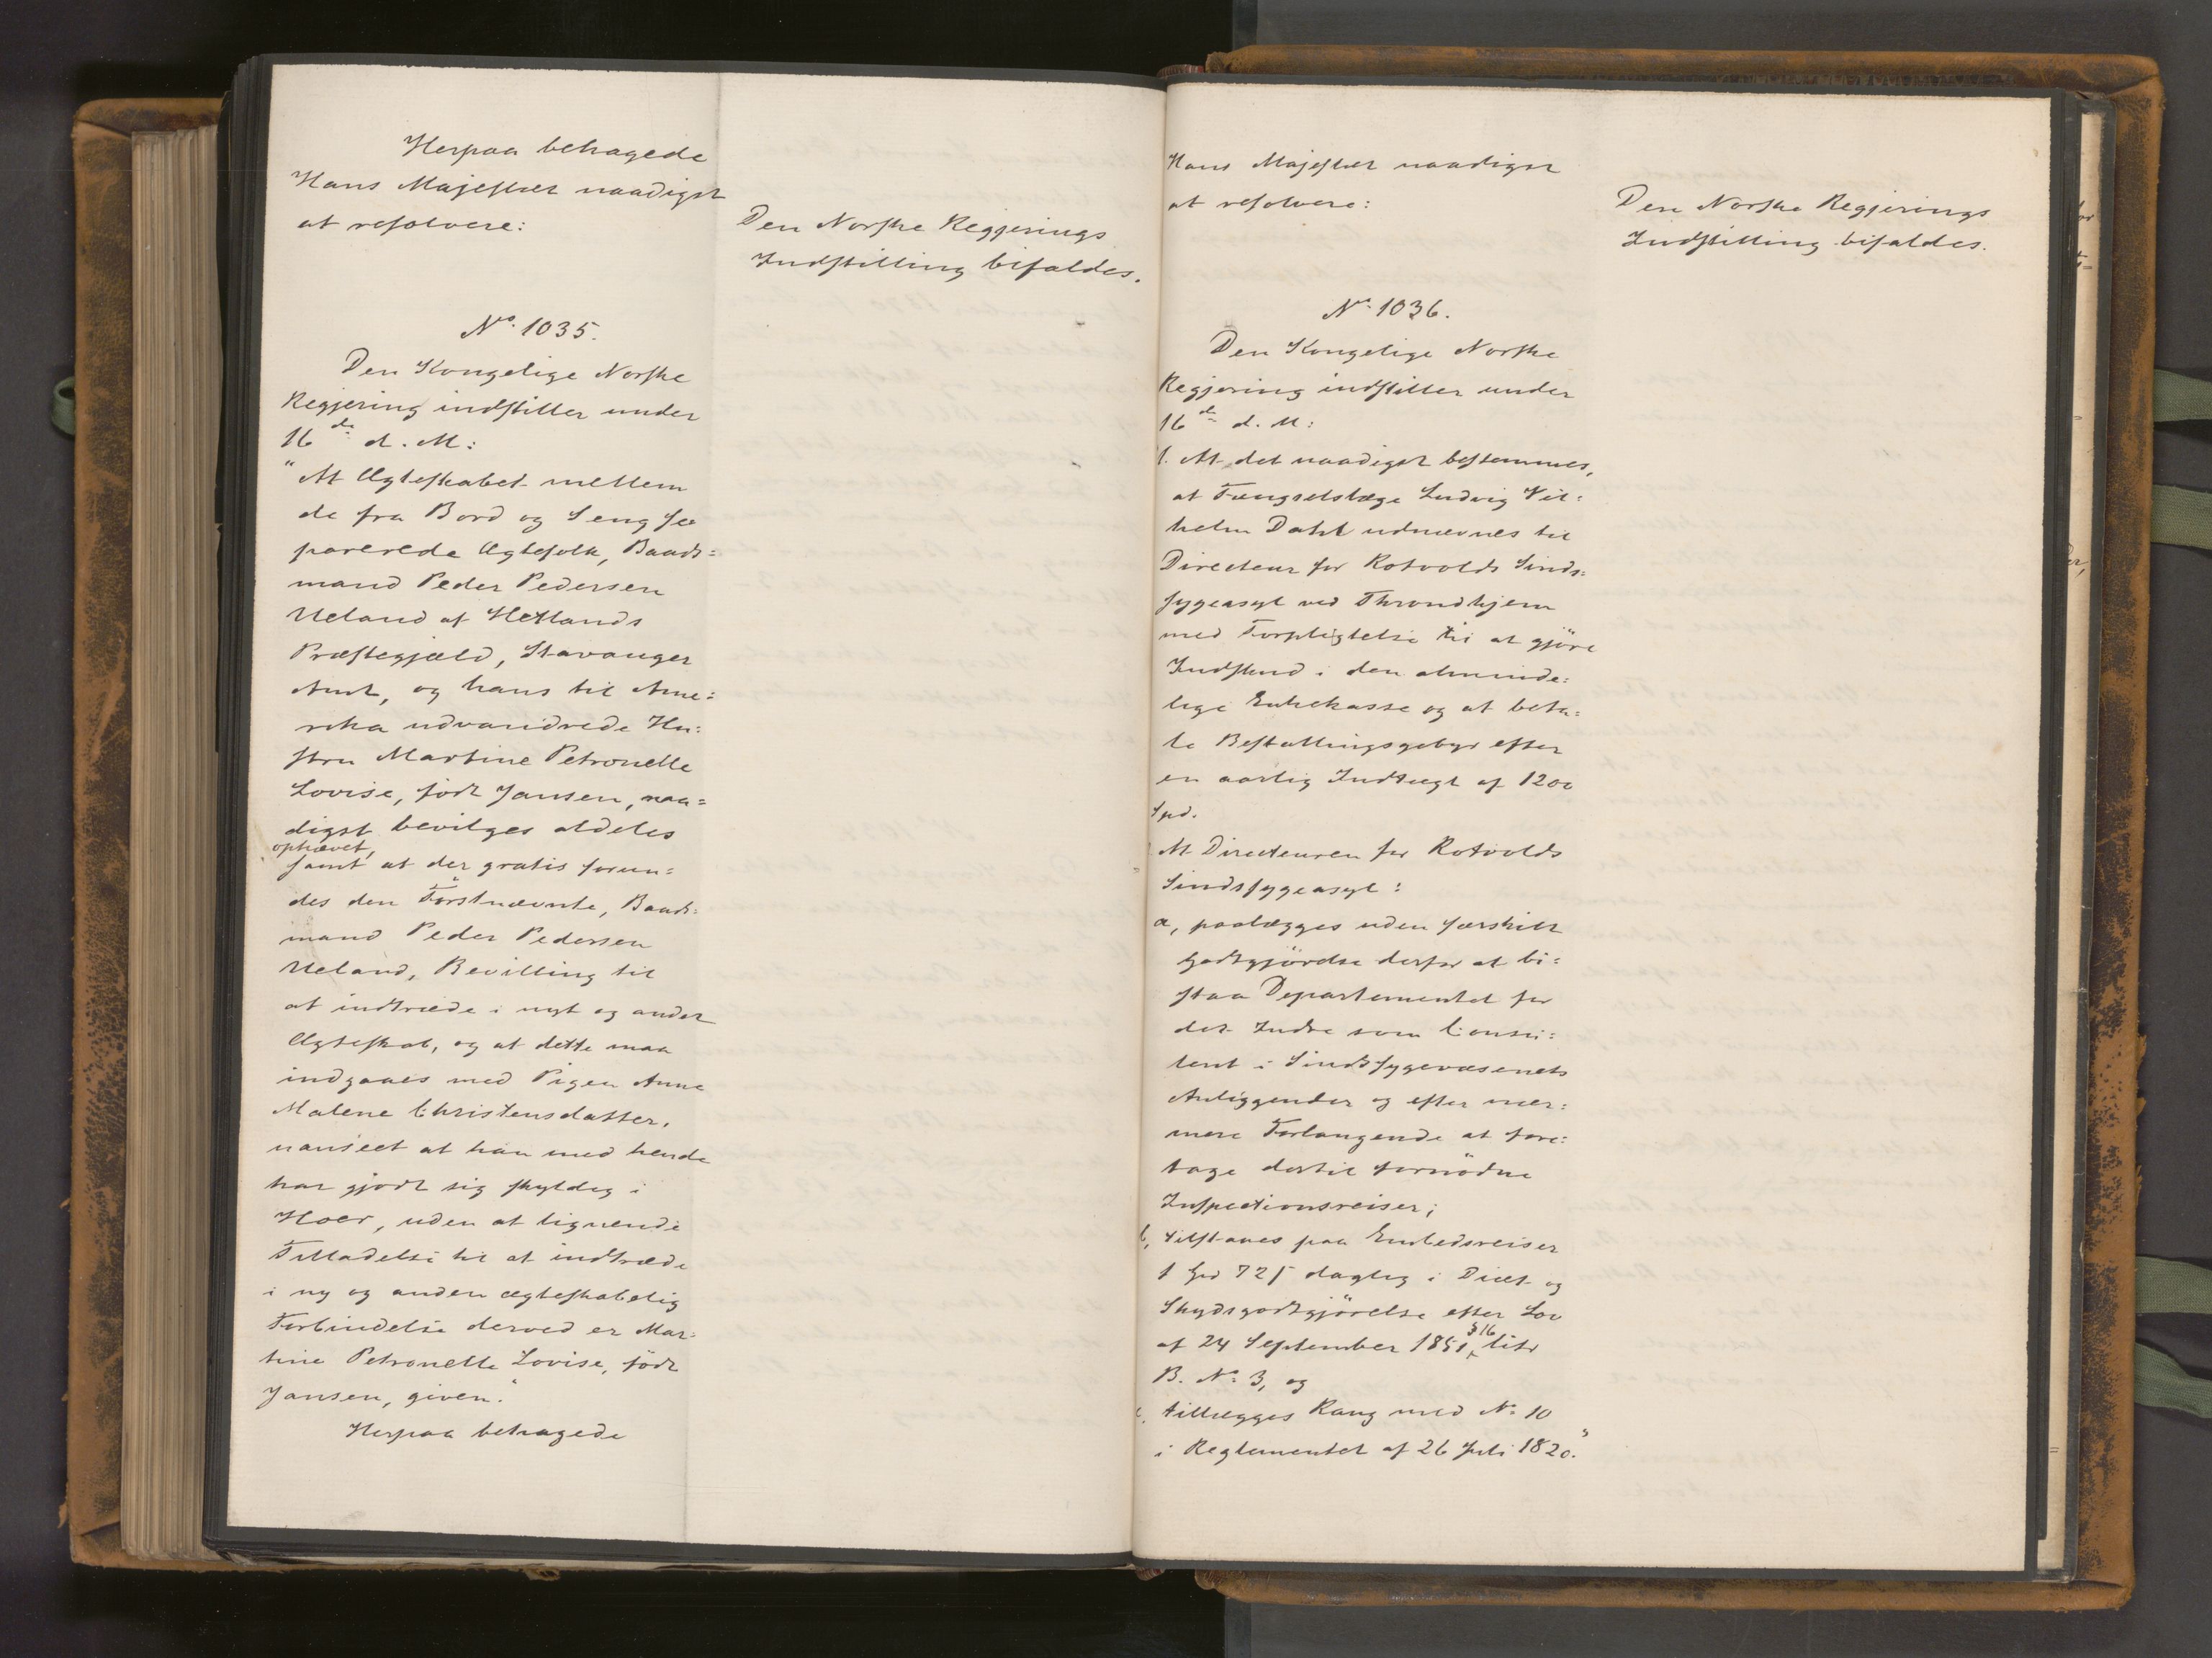 Herpaa behagede
Hans Majestæt naadigst
at resolvere:
Den Norske Regjerings
Indstilling bifaldes.
No. 1035.
Den Kongelige Norske
Regjering indstiller under
16de d. M:
"At Ægteskabet mellem
de fra Bord og Seng se
parerede Ægtefolk, Baads=
mand Peder Pedersen
Ueland af Hetlands
Præstegjæld, Stavanger
Amt, og hans til Ame=
rika udvandrede Hu=
stru Martine Petronelle
Lovise, født Jansen, naa=
digst bevilges aldeles
ophævet,
samt at der gratis forun=
des den Førstnævnte, Baads=
mand Peder Pedersen
Ueland, Bevilling til
at indtræde i nyt og andet
Ægteskab, og at dette maa
indgaaes med Pigen Anne
Malene Christensdatter,
uanseet at han med hende
har gjort sig skyldig i
Hoer, uden at lignende
Tilladelse til at indtræde
i ny og anden ægteskabelig
Forbindelse derved er Mar=
tine Petronelle Lovise, født
Jansen, given."
Herpaa behagede
Hans Majestæt naadigst
at resolvere:
Den Norske Regjerings
Indstilling bifaldes.
No. 1036.
Den Kongelige Norske
Regjering indstiller under
16de d. M:
1. At det naadigst bestemmes,
at Fængselslæge Ludvig Vil=
helm Dahl udnævnes til
Directeur for Rotvolds Sinds=
sygeasyl ved Throndhjem
med Forpligtelse til at gjöre
Indskud i den alminde=
lige Enkekasse og at beta=
le Bestallingsgebyr efter
en aarlig Indtægt af 1200
Spd.
At Directeuren for Rotvolds
Sindssygeasyl:
a, paalægges uden særskilt
Godtgjörelse derfor at bi=
staa Departementet for
det Indre som Consu=
lent i Sindssygevæsenets
Anliggender og efter nær=
mere Forlangende at fore=
tage dertil fornödne
Inspectionsreiser;
b, tilstaaes paa Embedsreiser
1 Spd 72 ß daglig i Diæt og
Skydsgodtgjörelse efter Lov
af 24 September 1851, § 16 litr
B. No 3, og
c, tillægges Rang med No 10
i Reglementet af 26 Juli 1820."